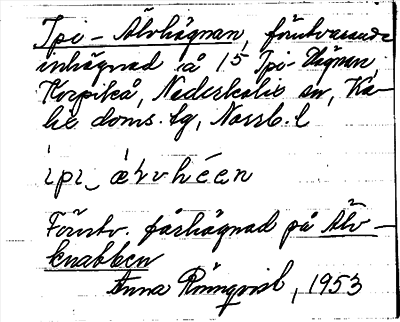 Ipi-Älvhägnan, förutvarande
inhägnad å 15 Ipi-Hägnan,
Korpikå, Nederkalix sn, Ka-
lix doms. lg, Norrb. l
ipi_ älvhéen
Förutv. fårhägnad på Älv-
knabben
Anna Rönnqvist, 1953